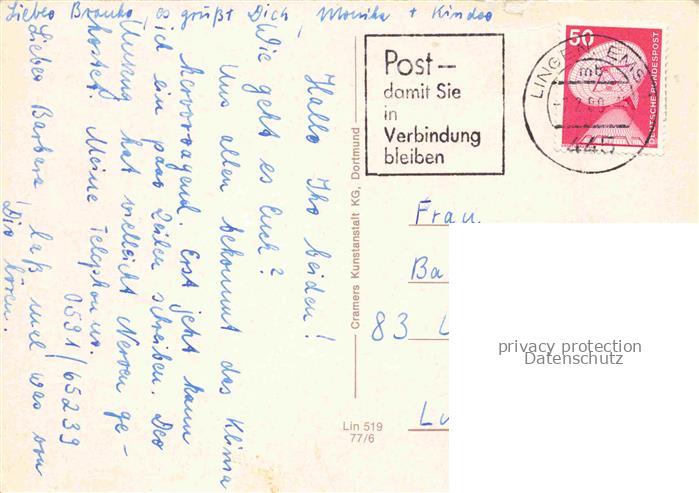 Lieber Branko, es grüßt Dich, Monika + Kinder
Hallo Ihr beiden!
Wie geht es Euch?
Uns allen bekommt das Klima
hervorragend. Erst jetzt kann
ich ein paar Zeilen schreiben. Der
Umzug hat vielleicht Nerven ge-
kostet. Meine Telephon nr.
0591/65239
Liebe Barbara, laß mal was von
Dir hören.
Cramers Kunstanstalt KG, Dortmund
Lin 519
77/6
Post –
damit Sie
in
Verbindung
bleiben
LINGEN, EMS
mb
445
50
DEUTSCHE BUNDESPOST
Frau
Ba
83 L
Lu
privacy protection
Datenschutz